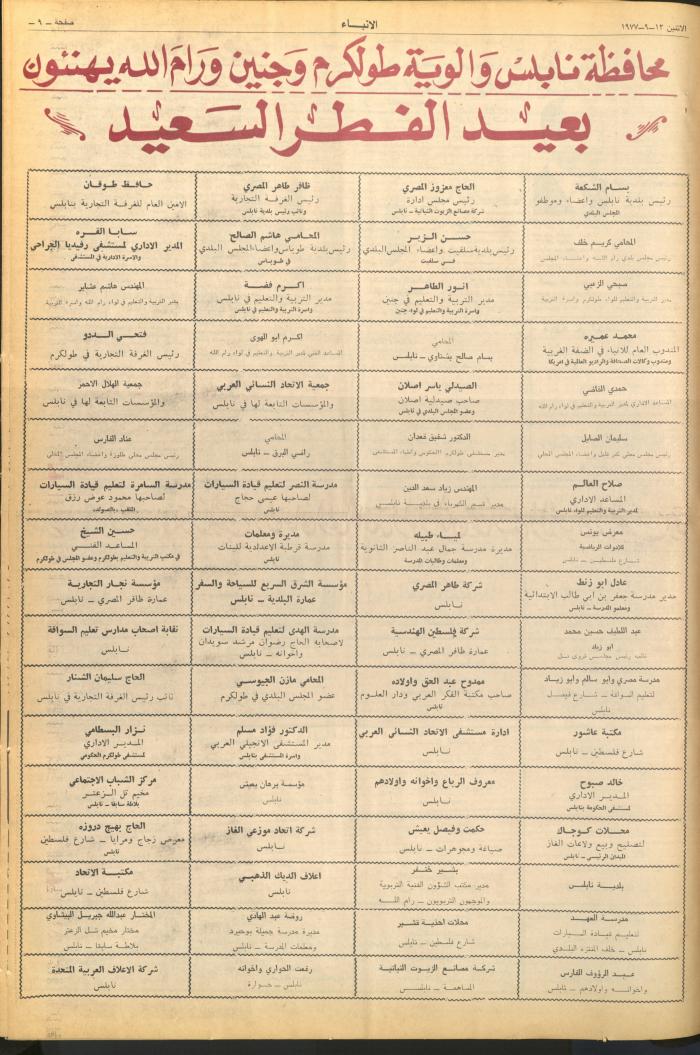 الاثنين ١٢-٩-١٩٧٧
الانباء
صفحة - ٩ -
محافظة نابلس والوية طولكرم وجنين ورام الله يهنئون
بعيد الفطر السعيد
بسام الشكعة
رئيس بلدية نابلس واعضاء وموظفو
المجلس البلدي
الحاج معزوز المصري
رئيس مجلس ادارة
شركة مصانع الزيوت النباتية - نابلس
ظافر طاهر المصري
رئيس الغرفة التجارية
ونائب رئيس بلدية نابلس
حافظ طوقان
الامين العام للغرفة التجارية بنابلس
المحامي كريم خلف
رئيس مجلس بلدي رام الله واعضاء المجلس
حسن الزير
رئيس بلدية سلفيت واعضاء المجلس البلدي
في سلفيت
المحامي هاشم الصالح
رئيس بلدية طوباس واعضاء المجلس البلدي
في طوباس
سابا القره
المدير الاداري لمستشفى رفيديا الجراحي
والاسرة الادارية في المستشفى
صبحي الزعبي
مدير التربية والتعليم للواء طولكرم واسرة التربية
انور الطاهر
مدير التربية والتعليم في جنين
واسرة التربية والتعليم في لواء جنين
اكرم فضة
مدير التربية والتعليم في نابلس
واسرة التربية والتعليم في نابلس
المهندس هاشم عشاير
مدير التربية والتعليم في لواء رام الله واسرة التربية
محمد عميره
المندوب العام للانباء في الضفة الغربية
ومندوب وكالات الصحافة والراديو العالمية في امريكا
المحامي
بسام صالح بشتاوي - نابلس
اكرم ابو الهوى
المساعد الفني لمدير التربية والتعليم في لواء رام الله
فتحي الددو
رئيس الغرفة التجارية في طولكرم
حمدي القاضي
المساعد الاداري لمدير التربية والتعليم في لواء رام الله
الصيدلي ياسر اصلان
صاحب صيدلية اصلان
وعضو المجلس البلدي في نابلس
جمعية الاتحاد النسائي العربي
والمؤسسات التابعة لها في نابلس
جمعية الهلال الاحمر
والمؤسسات التابعة لها في نابلس
سليمان الصايل
رئيس مجلس محلي كفر قليل واعضاء المجلس المحلي
الدكتور شفيق قعدان
مدير مستشفى طولكرم الحكومي واطباء المستشفى
المحامي
رامي البرق - نابلس
عناد الفارس
رئيس مجلس محلي طلوزة واعضاء المجلس المحلي
صلاح العالم
المساعد الاداري
لمدير التربية والتعليم للواء نابلس
المهندس زياد سعد الدين
مدير قسم الكهرباء في بلدية نابلس
مدرسة النصر لتعليم قيادة السيارات
لصاحبها عيسى حجاج
نابلس
مدرسة السامرة لتعليم قيادة السيارات
لصاحبها محمود عوض رزق
معرض يونس
للادوات الرياضية
شارع فلسطين - نابلس
لمياء طبيله
مديرة مدرسة جمال عبد الناصر الثانوية
ومعلمات وطالبات المدرسة
مديرة ومعلمات
مدرسة قرطبة الاعدادية للبنات
نابلس
حسين الشيخ
المساعد الفني
في مكتب التربية والتعليم بطولكرم وعضو المجلس في طولكرم
عادل ابو زنط
مدير مدرسة جعفر بن ابي طالب الابتدائية
ومعلمو المدرسة - نابلس
شركة طاهر المصري
نابلس
مؤسسة الشرق السريع للسياحة والسفر
عمارة البلدية - نابلس
مؤسسة نجار التجارية
عمارة ظافر المصري - نابلس
عبد اللطيف حسين محمد
ابو زياد
شركة فلسطين الهندسية
عمارة ظافر المصري - نابلس
مدرسة الهدى لتعليم قيادة السيارات
لاصحابه الحاج رضوان مرشد سويدان
واخوانه - نابلس
نقابة اصحاب مدارس تعليم السواقة
نابلس
مدرسة مصري وابو سالم وابو زياد
لتعليم السواقة - شارع فيصل
نابلس
ممدوح عبد الحق واولاده
صاحب مكتبة الفكر العربي ودار العلوم
نابلس
المحامي مازن الجيوسي
عضو المجلس البلدي في طولكرم
الحاج سليمان الشنار
نائب رئيس الغرفة التجارية في نابلس
مكتبة عاشور
شارع فلسطين - نابلس
ادارة مستشفى الاتحاد النسائي العربي
نابلس
الدكتور فؤاد مسلم
مدير المستشفى الانجيلي العربي
واسرة المستشفى بنابلس
نزار البسطامي
المدير الاداري
لمستشفى طولكرم الحكومي
خالد صبوح
المدير الاداري
لمستشفى الحكومة بنابلس
معروف الرباع واخوانه واولادهم
نابلس
مؤسسة برهان يعيش
نابلس
مركز الشباب الاجتماعي
مخيم تل الزعتر
بلاطة سابقا - نابلس
محلات كوجاك
لتصليح وبيع ولاعات الغاز
الميدان الرئيسي - نابلس
حكمت وفيصل يعيش
صياغة ومجوهرات - نابلس
شركة اتحاد موزعي الغاز
نابلس
الحاج بهيج دروزه
معرض زجاج ومرايا - شارع فلسطين
نابلس
بلدية نابلس
بشير خنفر
مدير مكتب الشؤون الفنية التربوية
والموجهون التربويون - رام الله
اعلاف الديك الذهبي
نابلس
مكتبة الاتحاد
شارع فلسطين - نابلس
مدرسة العهد
لتعليم قيادة السيارات
نابلس - خلف المنتزه البلدي
محلات احذية قشير
شارع فلسطين - نابلس
روضة عبد الهادي
مديرة مدرسة جميلة بوحيرد
ومعلمات المدرسة - نابلس
المختار عبدالله جبريل البيشاوي
مختار مخيم تل الزعتر
بلاطة سابقا - نابلس
عبد الرؤوف الفارس
واخوانه واولادهم - نابلس
شركة مصانع الزيوت النباتية
المساهمة - نابلس
رفعت الحواري واخوانه
نابلس - حوارة
شركة الاعلاف العربية المتحدة
نابلس